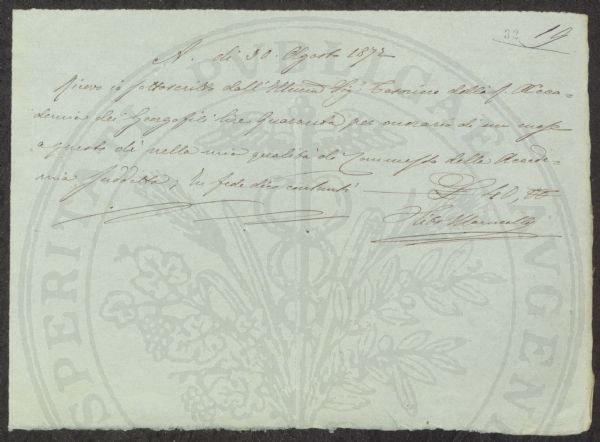 32 19
A. di 30. Agosto 1872
Ricevo io sottoscritto dall'Illmo Sig. Tesoriere della R. Acca-
demia dei Georgofili lire Quaranta per onorario di un mese
a questo dì nella mia qualità di Commesso della Accade-
mia suddetta; In fede dico contanti £ 40, 00
PROSPERITATI PUBLICAE AUGENDAE